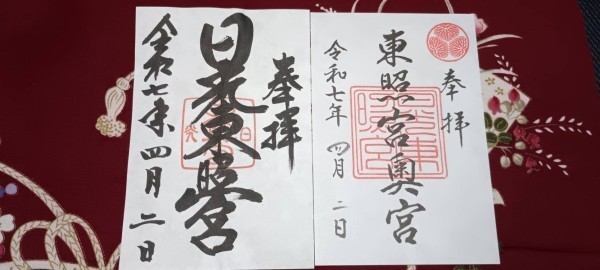 奉拝
日光東照宮
令和七年四月二日
奉拝
東照宮奥宮
令和七年四月二日